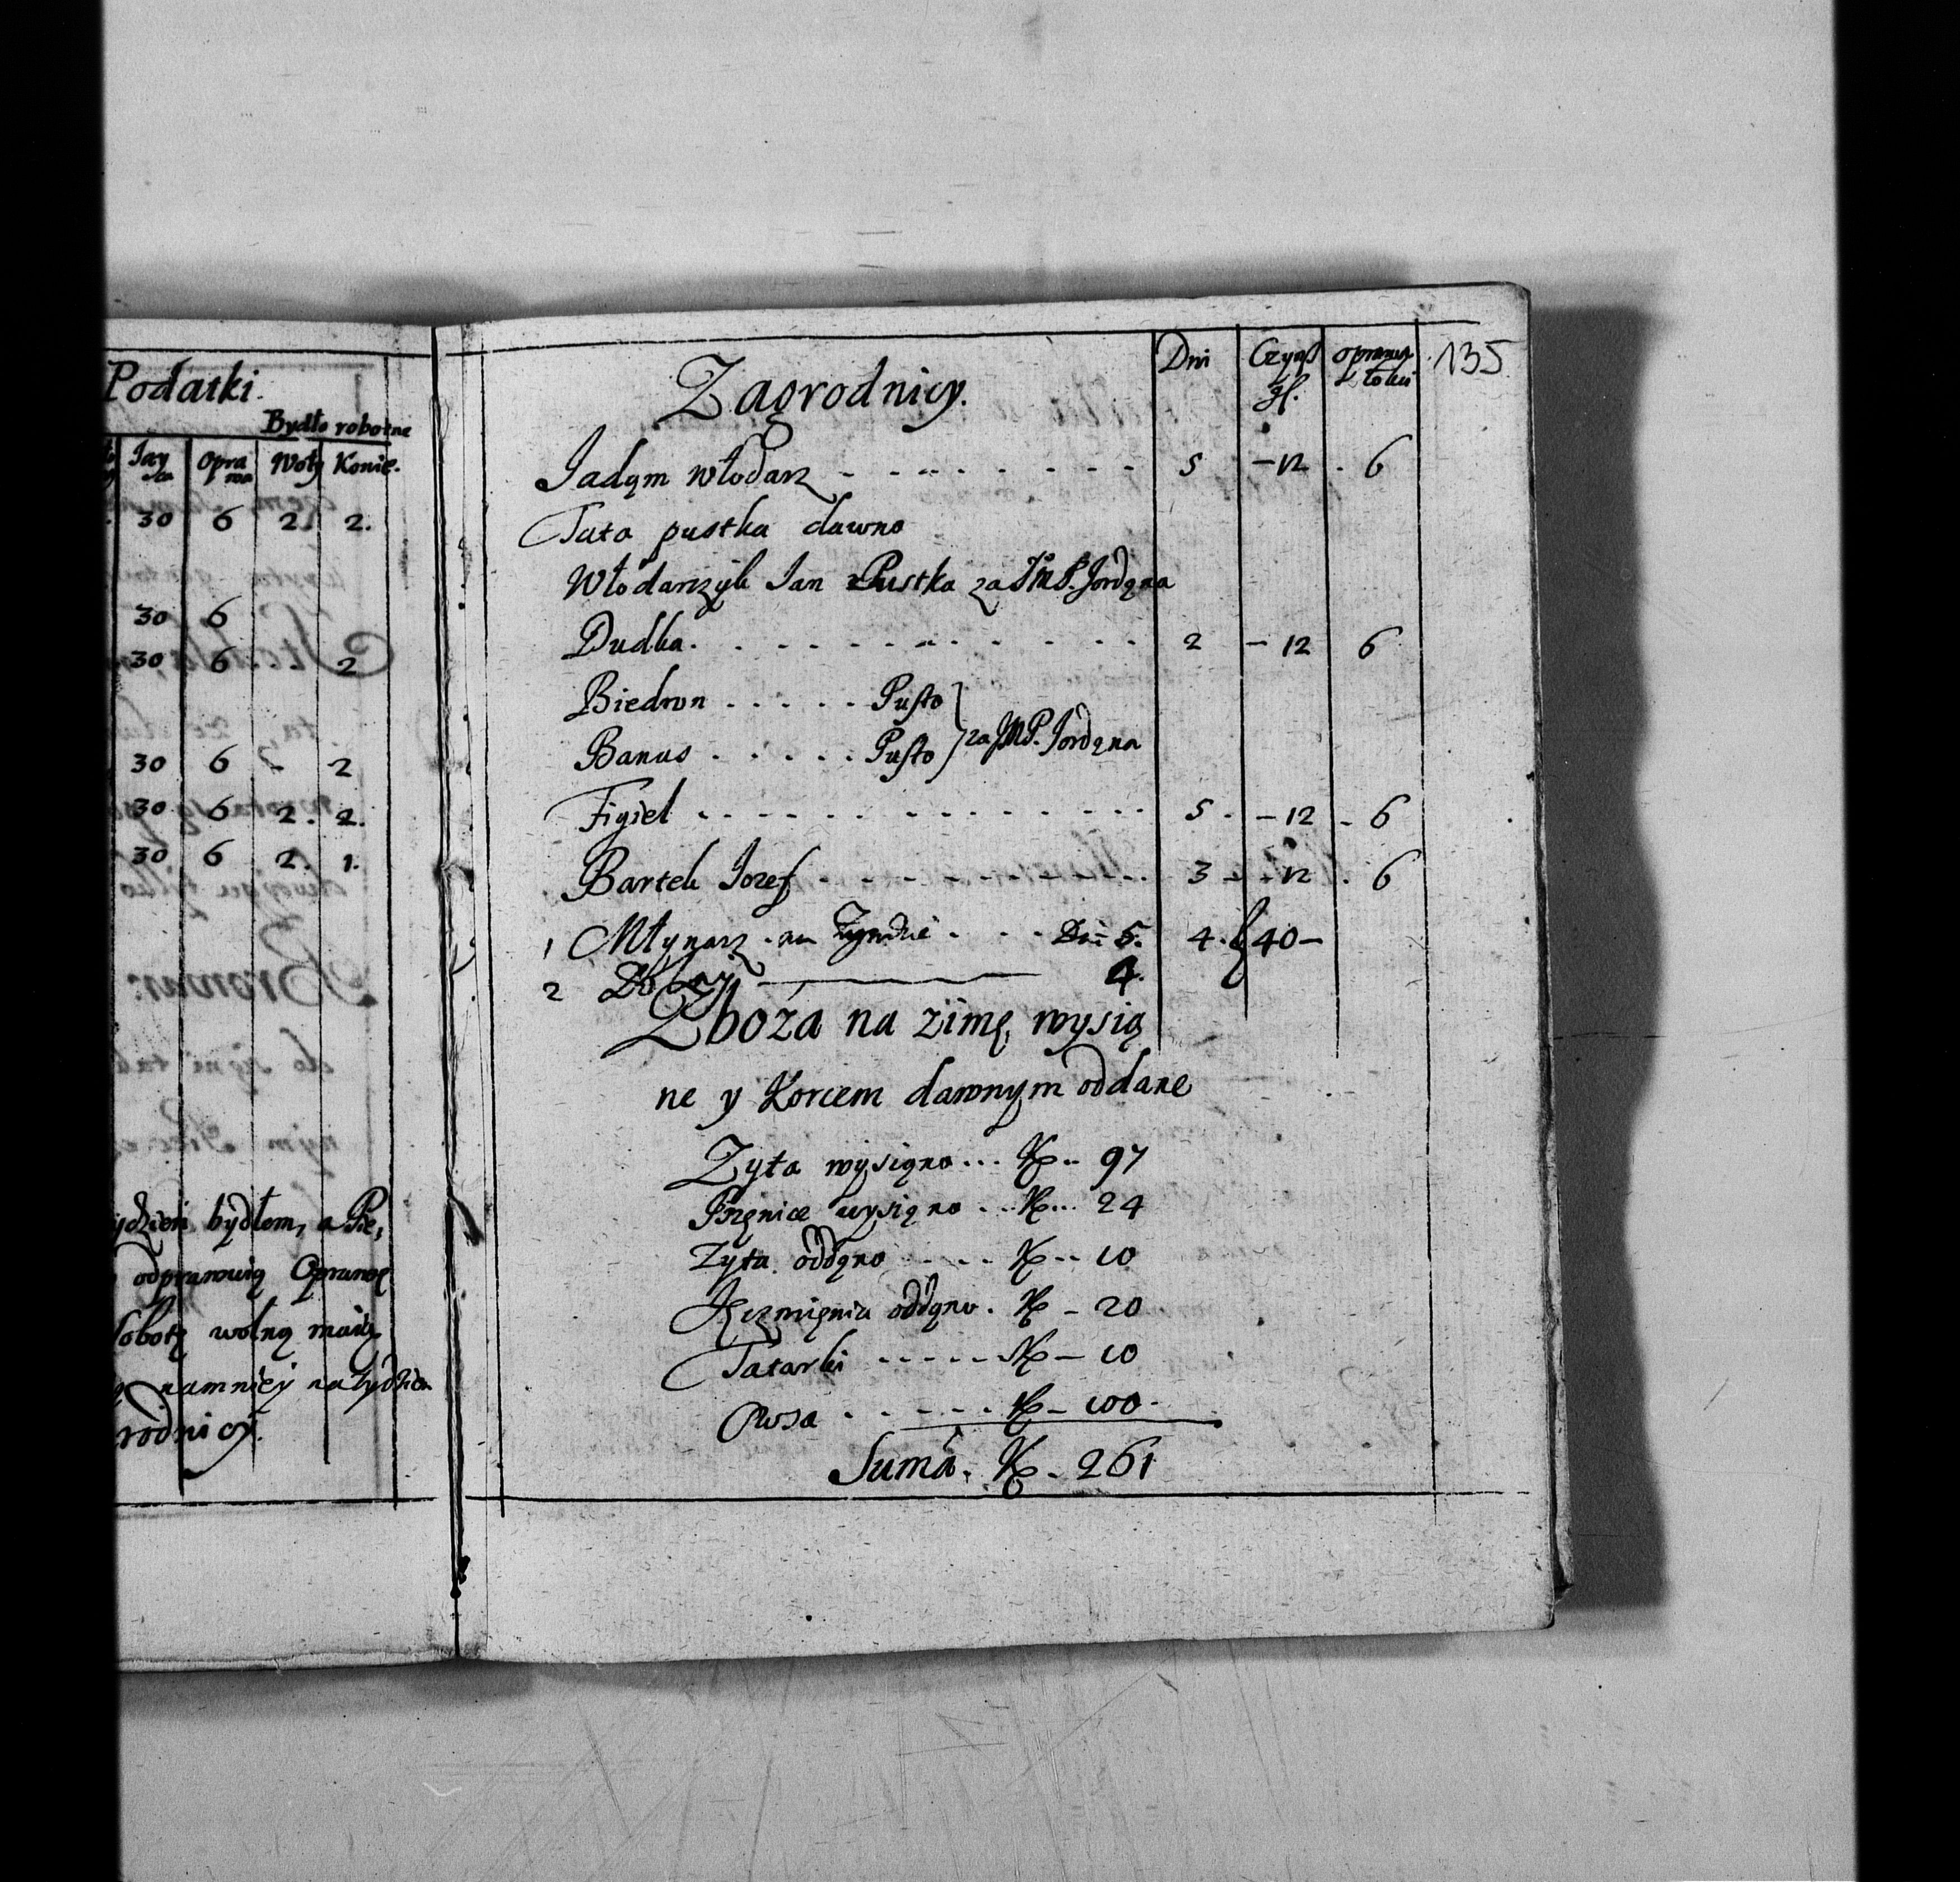 Podatki.
Bydło robotne
Jay
ca
Opra
wa
Woły
Konie.
30 6 2. 2.
30 6
30 6 2
30 6 - 2
30 6 2. 2.
30 6 2. 1.
ydzień bydłem, a Pie,
odprawuią Oprawę
Sobotę wolną maią
namniey na tydzien
rodnicy.
135
Zagrodnicy.
Dni
Czynß
zł.
oprawy
łokci
Jadąm włodarz - - - - - - - - 5 - 12 . 6
Tata pustka dawno
Włodarczyk Jan Pustka za JMP. Jordąna
Dudka. . - - - - - - - - - 2 - 12 6
Biedron . . . . . Pusto
Banus . . . . . Pusto } za JMP. Jordąna
Figiel - - - - - - - - - - - 5 . - 12 - 6
Bartek Jozef - - - - - - - - - 3 - - 12 . 6
1 Młynarz . na . . . Dni 5. 4. 40 -
2 4.
Zboża na zimę wysią
ne y Korcem dawnym oddane
Zyta wysiąno... K.. 97
Pszęnice wysiąno ... K... 24
Zyta oddąno - - - - K.. 10
Jęczmięnia oddąno . K - 20
Tatarki - - - - - K - 10
Owsa . - - - - . K - 100.
Suma. K. 261